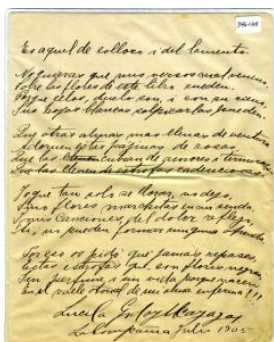 Es aquel de sollozo i del lamento.
No quieras que mis versos cual veneno
Sobre las flores de este libro rueden.
Porque celos, duelo son, i son su cieno
Sus hojas blancas salpicarlas pueden.
Que otras almas mas llenas de ventura
Adornen estas pájinas de rosas,
Que las cubran de primores i ternura
Que las llenen de estrofas cadenciosas.
Yo que tan solo se llorar, no dejo,
Sino flores marchitas en mi senda
I mis canciones del dolor reflejo
Ai, no pueden formar ninguna ofrenda.
Por eso os pido que jamás repases
Estas estrofas que son flores negras
Sin perfume, i sin vida porque nacen
En el valle de mi alma enferma!!!
Lucila Godoy Alcayaga
La Compañía Julio 1905